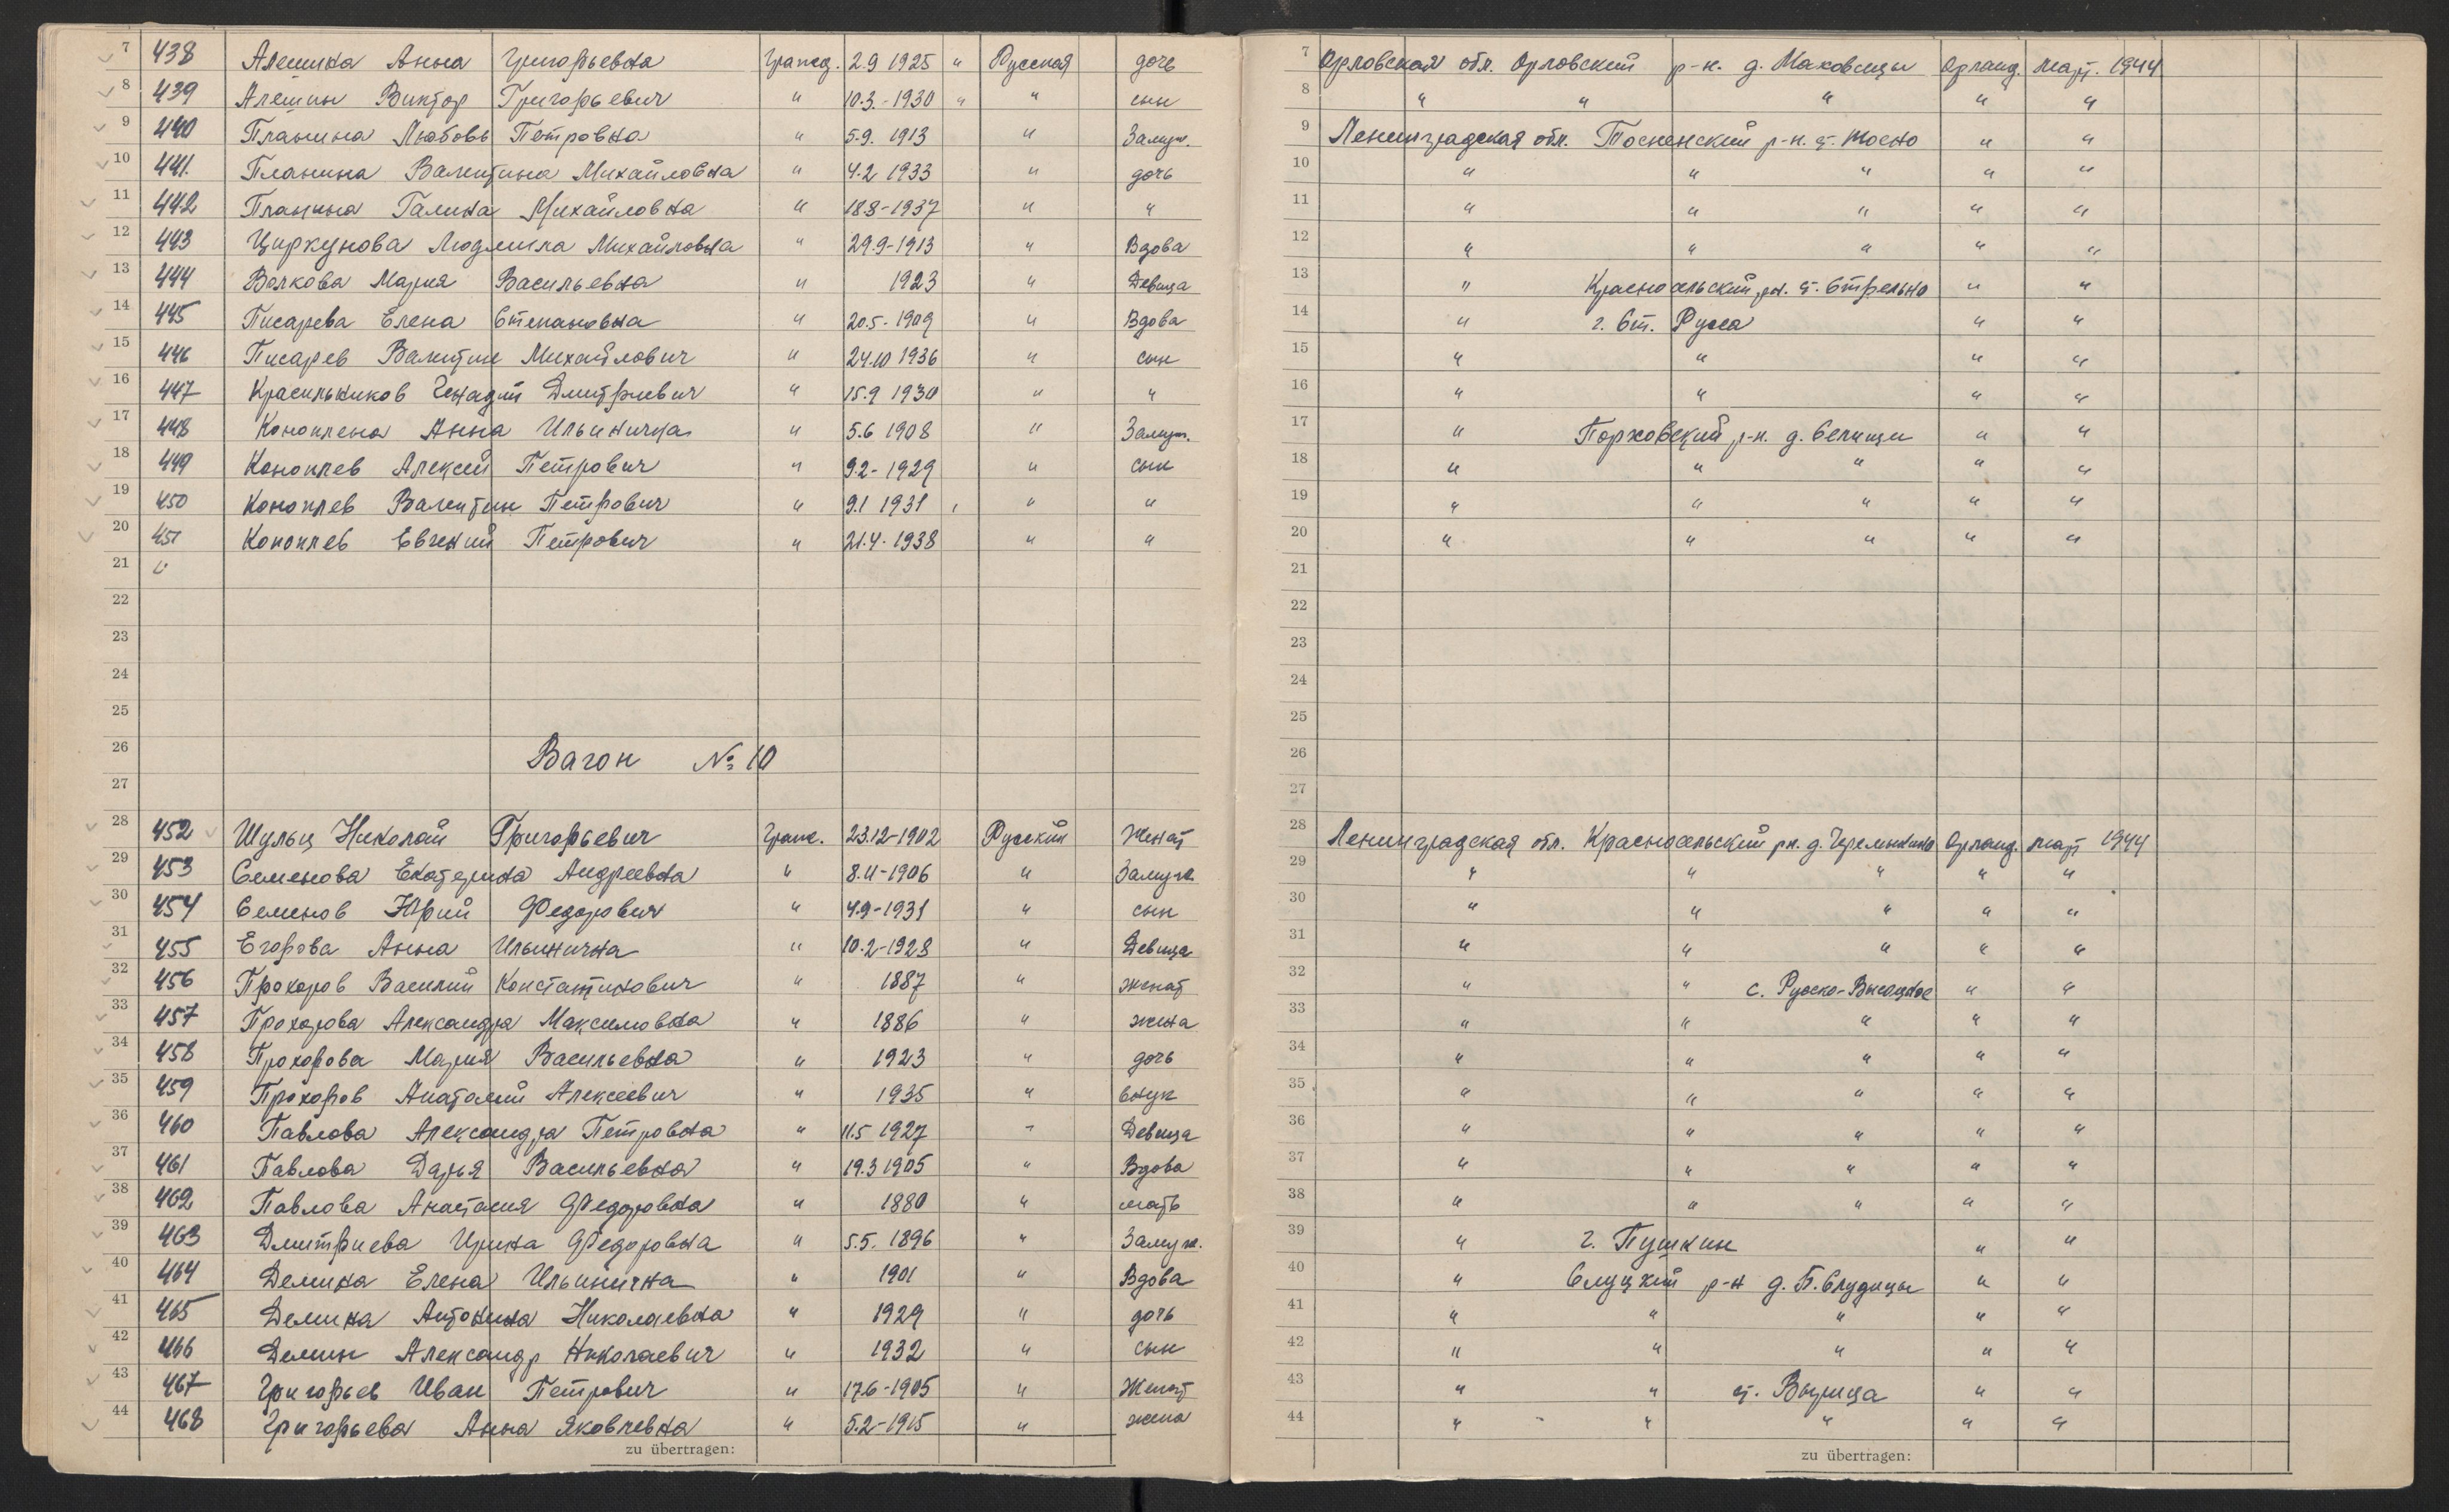 7 438 Алешина Анна Григорьевна гражд. 2.9 1925 " Русская дочь 7 Орловская обл. Орловский р-н. д. Маховицы Орланд. март. 1944
8 439 Алешин Виктор Григорьевич " 10.3.-1930 " " сын 8 " " " " "
9 440 Планина Любовь Петровна " 5.9. 1913 " Замуж. 9 Ленинградская обл. Тосненский р-н. ст. Тосно " "
10 441. Планина Валентина Михайловна " 4.2 1933 " дочь 10 " " " " "
11 442 Планина Галина Михайловна " 18.8-1937 " " 11 " " " " "
12 443 Циркунова Людмила Михайловна " 29.9-1913 " Вдова 12 " " " " "
13 444 Волкова Мария Васильевна " 1923 " Девица 13 " Красносельский рн. ст. Стрельно " "
14 445 Писарева Елена Степановна " 20.5.-1909 " Вдова 14 " г. Ст. Русса " "
15 446 Писарев Валентин Михайлович " 24.10 1936 " сын 15 " " " "
16 447 Красильников Генадий Дмитриевич " 15.9 1930 " " 16 " " " "
17 448 Коноплена Анна Ильинична " 5.6 1908 " Замуж. 17 " Порховский р-н. д. Селищи " "
18 449 Коноплев Алексей Петрович " 9.2-1929 " сын 18 " " " " "
19 450 Коноплев Валентин Петрович " 9.1 1931 " " 19 " " " " "
20 451 Коноплев Евгений Петрович " 21.4.1938 " " 20 " " " " "
21 " 21
22 22
23 23
24 24
25 25
26 Вагон № 10 26
27 27
28 452 Шульц Николай Григорьевич Граж. 23.12-1902 Русский Женат 28 Ленинградская обл. Красносельский рн. д. Черемыкино Орланд. март 1944
29 453 Семенова Екатерина Андреевна " 8.11-1906 " Замуж 29 " " " " "
30 454 Семенов Юрий Федорович " 4.9-1931 " сын 30 " " " " "
31 455 Егорова Анна Ильинична " 10.2-1928 " Девица 31 " " " " "
32 456 Прохоров Василий Констатинович " 1887 " женат 32 " " с. Русско-Высоцкое " "
33 457 Прохорова Александра Максимовна " 1886 " жена 33 " " " " "
34 458 Прохорова Мария Васильевна " 1923 " дочь 34 " " " " "
35 459 Прохоров Анатолий Алексеевич " 1935 " внук 35 " " " " "
36 460 Павлова Александра Петровна " 11.5 1927 " Девица 36 " " " " "
37 461 Павлова Дарья Васильевна " 19.3 1905 " Вдова 37 " " " " "
38 462 Павлова Анастасия Федоровна " 1880 " мать 38 " " " " "
39 463 Дмитриева Ирина Федоровна " 5.5. 1896 " Замуж. 39 " г. Пушкин " "
40 464 Демина Елена Ильинична " 1901 " Вдова 40 " Слуцкий р-н д. Б. Слудицы " "
41 465 Демина Антонина Николаевна " 1929 " дочь 41 " " " " "
42 466 Демин Александр Николаевич " 1932 " сын 42 " " " " "
43 467 Григорьев Иван Петрович " 17.6-1905 " Женат 43 " " ст. Вырица " "
44 468 Григорьева Анна Яковлевна " 5.2-1915 " жена 44 " " " " "
zu übertragen: zu übertragen: